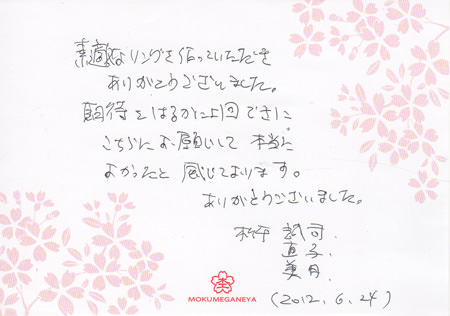 素敵なリングを作っていただき
ありがとうございました。
期待をはるかに上回るできに
こちらにお願いして 本当に
よかったと 感じております。
ありがとうございました。
誠司.
直子.
美月.
(2012. 6. 24)
MOKUMEGANEYA